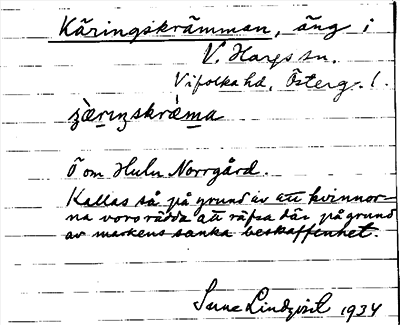 Käringskrämman, äng i
V. Hargs sn.
Vifolka hd, Österg. l.
ʒæ̀rɩŋskrǽma
Ö om Hulu Norrgård.
Kallas så på grund av att kvinnor-
na voro rädda att räfsa där på grund
av markens sanka beskaffenhet.
Sune Lindqvist 1934